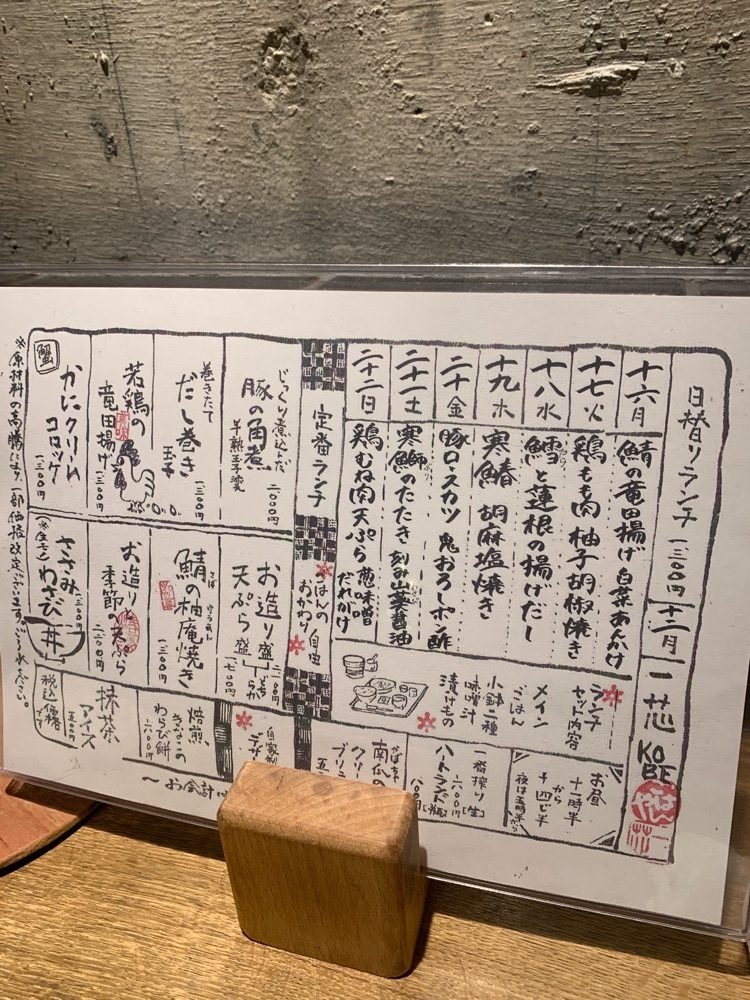 日替りランチ 一三〇〇円
十二月
一芯
KOBE
十六月 鯖の竜田揚げ 白菜あんかけ
十七火 鶏もも肉 柚子胡椒焼き
十八水 鱈と蓮根の揚げだし
十九木 寒鰆 胡麻塩焼き
二十金 豚ロースカツ 鬼おろしポン酢
二十一土 寒鰤のたたき 刻み山葵醤油
二十二日 鶏むね肉天ぷら 葱味噌だれがけ
ランチセット内容
メイン
ごはん
小鉢二種
味噌汁
漬けもの
お昼
十一時半
から
十四じ半
夜は五時半から
定番ランチ
ごはんの
おかわり自由
じっくり煮込んだ
豚の角煮
半熟玉子
二〇〇〇円
巻きたて
だし巻き
玉子
一三〇〇円
若鶏の
竜田揚げ
一三〇〇円
蟹
かにクリーム
コロッケ
一三〇〇円
お造り盛
天ぷら盛
どちらか
鯖の柚庵焼き
一三〇〇円
お造りと
季節の天ぷら
ささみ
わさび
丼
一三〇〇円
一番搾り[生]
六〇〇円
ハートランド
南瓜の
自家製
焙煎
きなこの
わらび餅
抹茶
アイス
五〇〇円
税込価格
です
〜お会計は
※原材料の高騰により、一部価格改定ございます。ご了承ください。